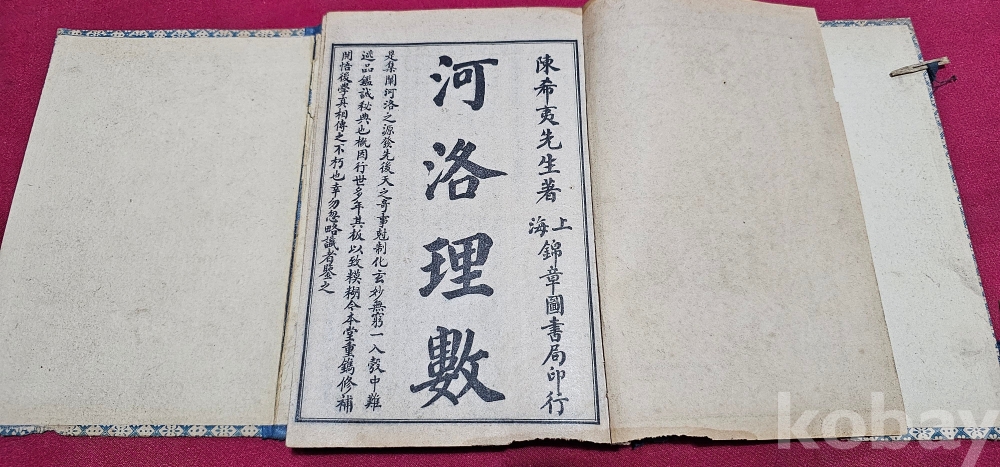 陳希夷先生著
上海錦章圖書局印行
河洛理數
是集闡河洛之源發先後天之奇事尅制化玄妙無窮一入彀中難
逃品鑑誠秘典也概因行世多年其板以致糢糊今本堂重鐫修補
開悟後學真相傳之不朽也幸勿忽略識者鑒之
kobay